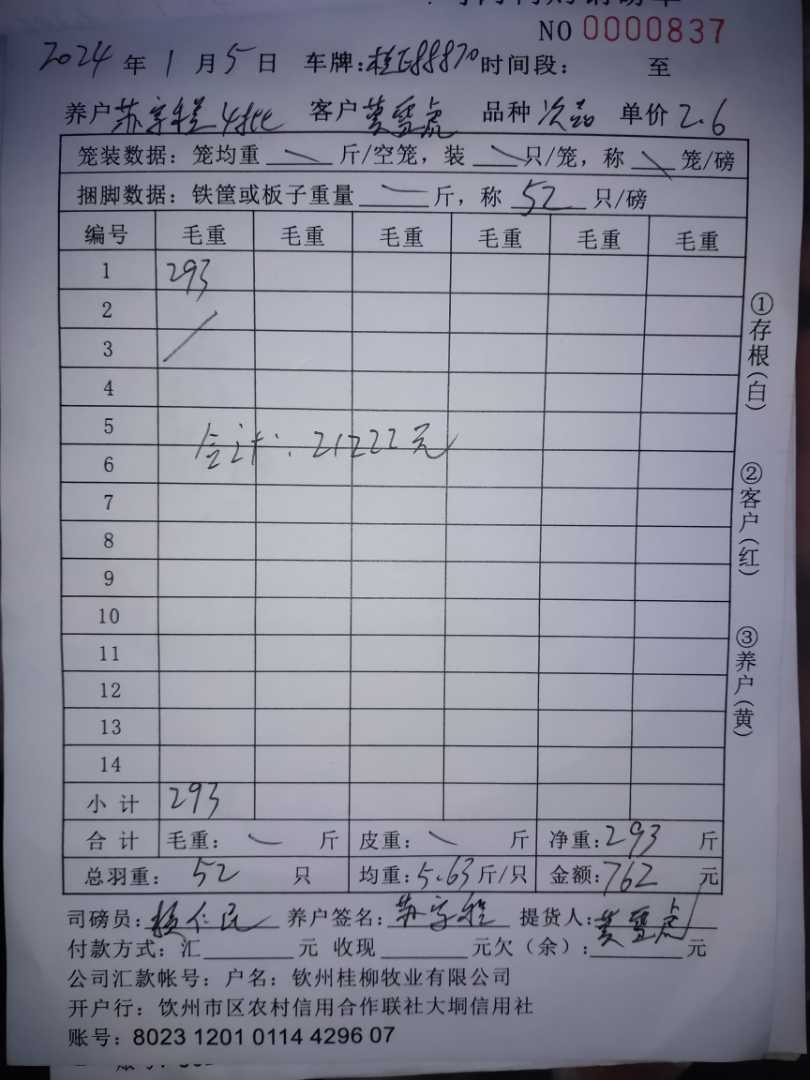 NO 0000837
2024 年 1 月 5 日 车牌:桂E88870 时间段: 至
养户 苏字程 4批 客户 黄雪虎 品种 次品 单价 2.6
笼装数据: 笼均重 斤/空笼, 装 只/笼, 称 笼/磅
捆脚数据: 铁筐或板子重量 斤, 称 52 只/磅
编号 毛重 毛重 毛重 毛重 毛重 毛重
1 293
2
3
4
5
合计: 21222元
6
7
8
9
10
11
12
13
14
小计 293
合计 毛重: 斤 皮重: 斤 净重: 293 斤
总羽重: 52 只 均重: 5.63 斤/只 金额: 762 元
司磅员: 仁民 养户签名: 苏字程 提货人: 黄雪虎
付款方式: 汇 元 收现 元欠(余): 元
公司汇款帐号: 户名: 钦州桂柳牧业有限公司
开户行: 饮州市区农村信用合作联社大垌信用社
账号: 8023 1201 0114 4296 07
①存根(白)
②客户(红)
③养户(黄)